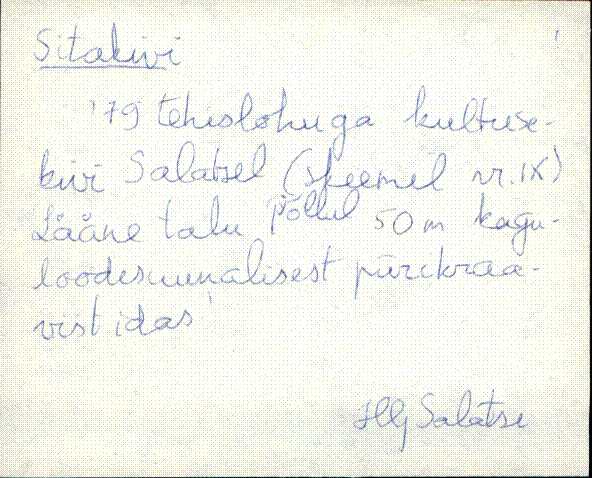 Sitakivi
'79 tehislohuga kultuse-
kivi Salatsel (skeemil nr. IX)
Lääne talu põllul 50 m kagu-
loodesuunalisest piirikraa-
vist idas
Hlj Salatse